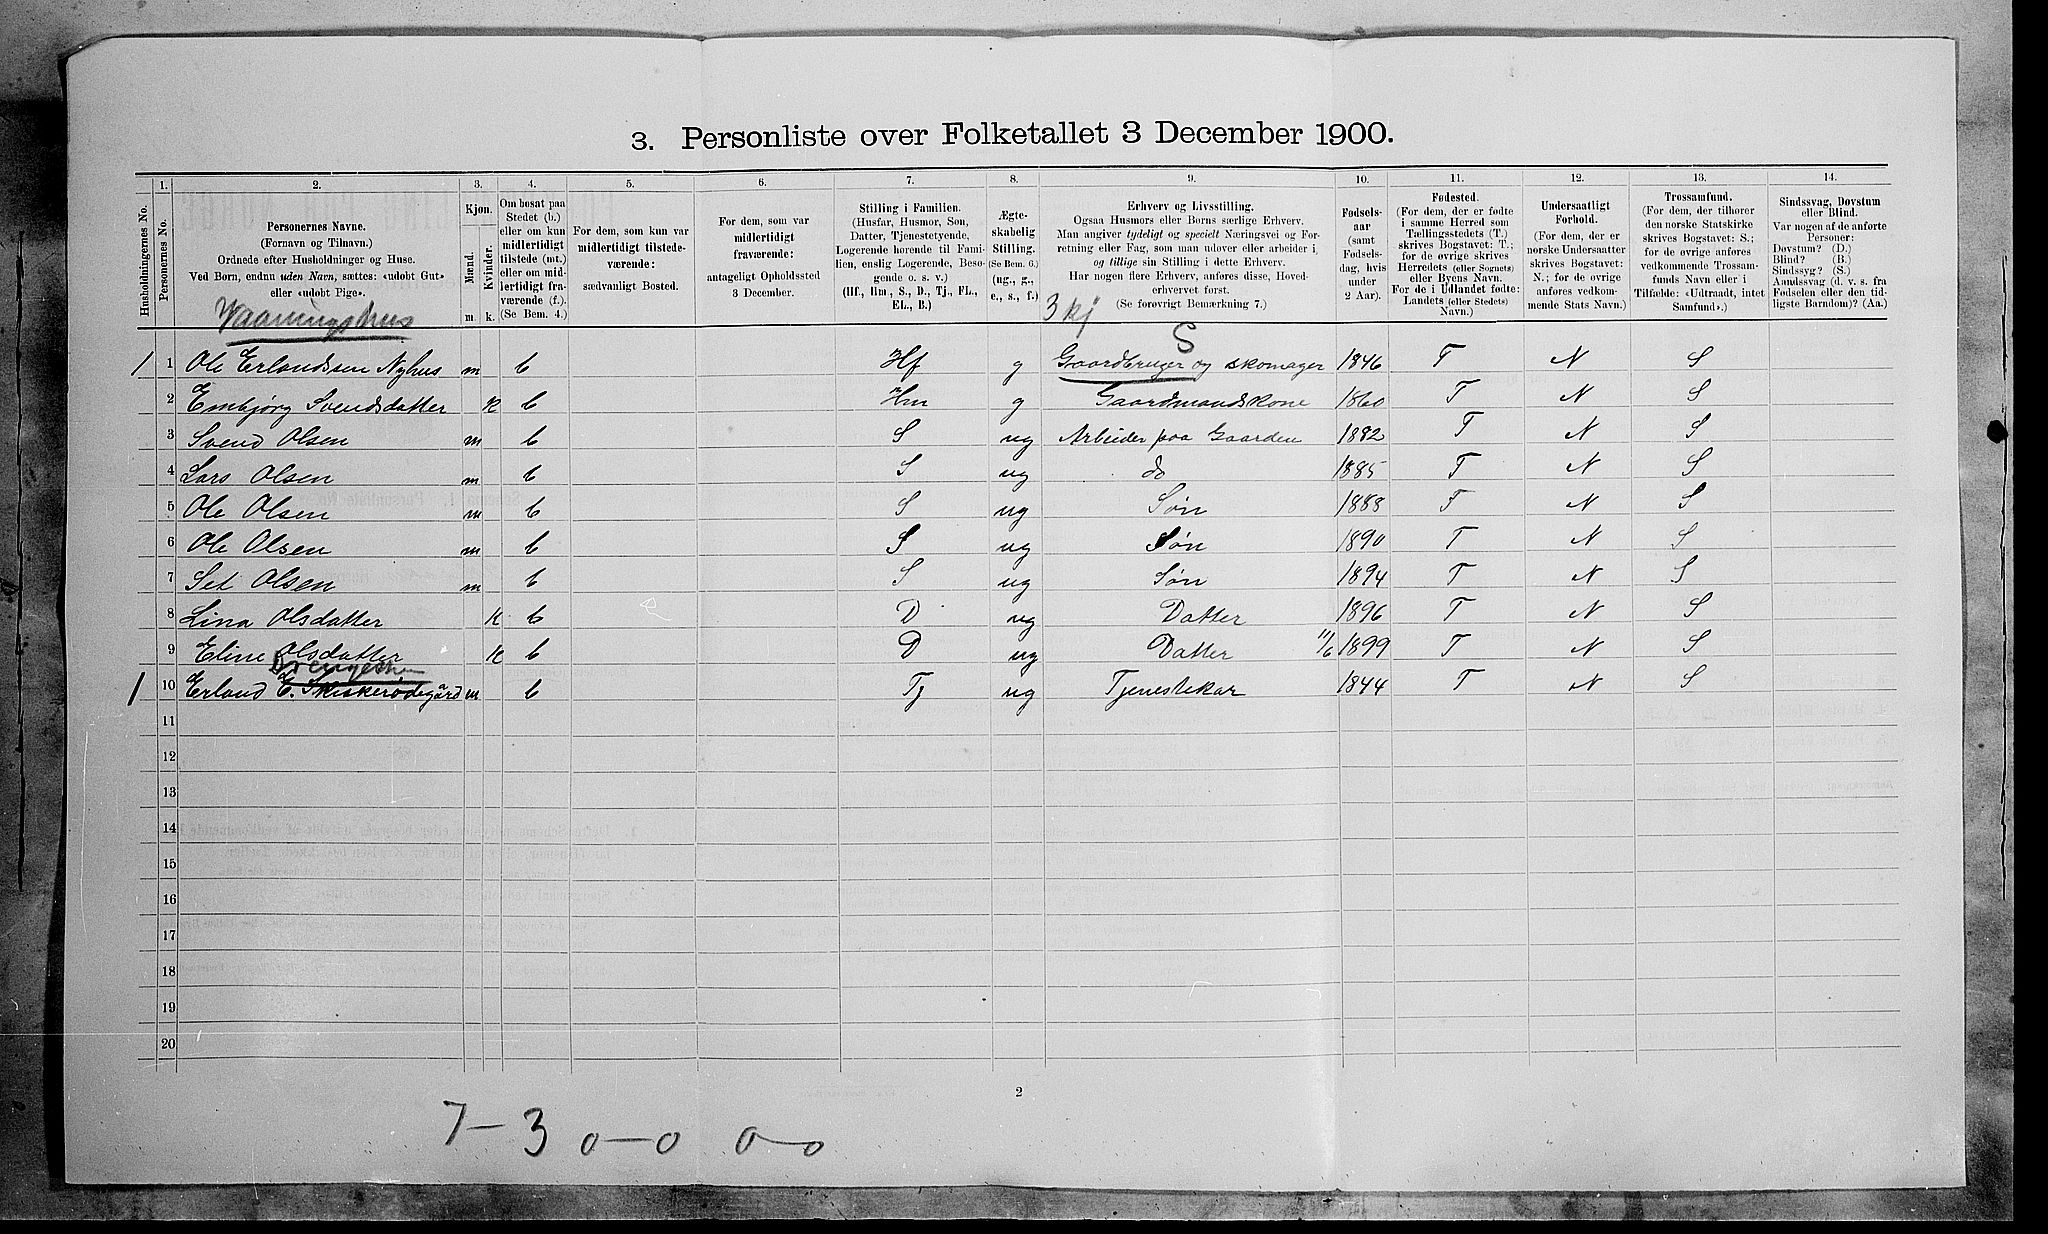 3. Personliste over Folketallet 3 December 1900.
Husholdningernes No.
1. Personernes No.
2. Personernes Navne.
(Fornavn og Tilnavn.)
Ordnede efter Husholdninger og Huse.
Ved Børn, endnu uden Navn, sættes: «udobt Gut»
eller «udobt Pige».
3. Kjøn.
Mænd. m.
Kvinder. k.
4. Om bosat paa
Stedet (b.)
eller om kun
midlertidigt
tilstede (mt.)
eller om mid-
lertidigt fra-
værende (f.).
(Se Bem. 4.)
5. For dem, som kun var
midlertidigt tilstede-
værende:
sædvanligt Bosted.
6. For dem, som var
midlertidigt
fraværende:
antageligt Opholdssted
3 December.
7. Stilling i Familien.
(Husfar, Husmor, Søn,
Datter, Tjenestetyende,
Logerende hørende til Fami-
lien, enslig Logerende, Besø-
gende o. s. v.)
(Hf., Hm., S., D., Tj., FL.,
EL., B.)
8. Ægte-
skabelig
Stilling.
(Se Bem. 6.)
(ug., g.,
e., s., f.)
9. Erhverv og Livsstilling.
Ogsaa Husmors eller Børns særlige Erhverv.
Man angiver tydeligt og specielt Næringsvei og For-
retning eller Fag, som man udøver eller arbeider i,
og tillige sin Stilling i dette Erhverv.
Har nogen flere Erhverv, anføres disse, Hoved-
erhvervet først.
(Se forøvrigt Bemærkning 7.)
10. Fødsels-
aar
(samt
Fødsels-
dag, hvis
under
2 Aar).
11. Fødested.
(For dem, der er fødte
i samme Herred som
Tællingsstedets (T.)
skrives Bogstavet: T.;
for de øvrige skrives
Herredets (eller Sognets)
eller Byens Navn.
For de i Udlandet fødte:
Landets (eller Stedets)
Navn.)
12. Undersaatligt
Forhold.
(For dem, der er
norske Undersaatter
skrives Bogstavet:
N.; for de øvrige
anføres vedkom-
mende Stats Navn.)
13. Trossamfund.
(For dem, der tilhører
den norske Statskirke
skrives Bogstavet: S.;
for de øvrige anføres
vedkommende Trossam-
funds Navn eller i
Tilfælde: «Udtraadt, intet
Samfund».)
14. Sindssvag, Døvstum
eller Blind.
Var nogen af de anførte
Personer:
Døvstum? (D.)
Blind? (B.)
Sindssyg? (S.)
Aandssvag (d. v. s. fra
Fødselen eller den tid-
ligste Barndom)? (Aa.)
Vaaningshus 3 kj S
1 1 Ole Erlandsen Nyhus m b Hf g Gaardbruger og skomager 1846 T N S
2 Embjørg Svendsdatter k b Hm g Gaardmandskone 1860 T N S
3 Svend Olsen m b S ug Arbeider paa Gaarden 1882 T N S
4 Lars Olsen m b S ug do 1885 T N S
5 Ole Olsen m b S ug Søn 1888 T N S
6 Ole Olsen m b S ug Søn 1890 T N S
7 Set Olsen m b S ug Søn 1894 T N S
8 Lina Olsdatter k b D ug Datter 1896 T N S
9 Eline Olsdatter k b D ug Datter 11/6 1899 T N S
1 10 Erland E. Skiskerødegård m b Tj ug Tjenestekar 1844 T N S
11
12
13
14
15
16
17
18
19
20
2
7-3 0-0 0-0